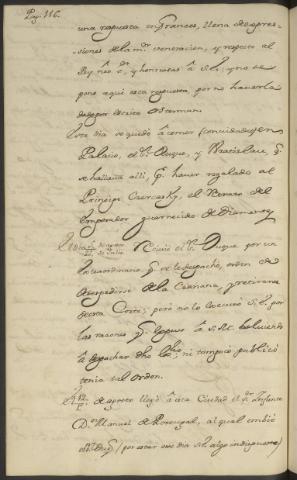 Pag. 116.
una respuesta en frances, llena de expre-
siones de la mr. veneracion, y respeto al
Rey nro. sr., y honrrosas â S.E. y no se
pone aqui esta respuesta, por no haverla
dexado escrita
Este dia se quedó â comer (convidado) en
Palacio, el Sr. Duque, y Bratislau q.
se hallaua alli, p. haver regalado al
Principe Czercasky, el Retrato del
Emperador guarnecido de Diamantes
Recivió el Sr. Duque por un
extraordinario q. se le despachó, orden de
despedirse de la Czariana, y retirarse
de esta Corte; pero no lo executó S.E. por
las razones q. expuso â S.M. bolviendo
â despachar dho. ni tampoco publicó
tenia tal orden.
de Agosto llegó â esta Ciudad el Sr. Infante
Dn. Manuel de Portugal, al qual embió
(por estar ese dia S.E. algo indispuesto)